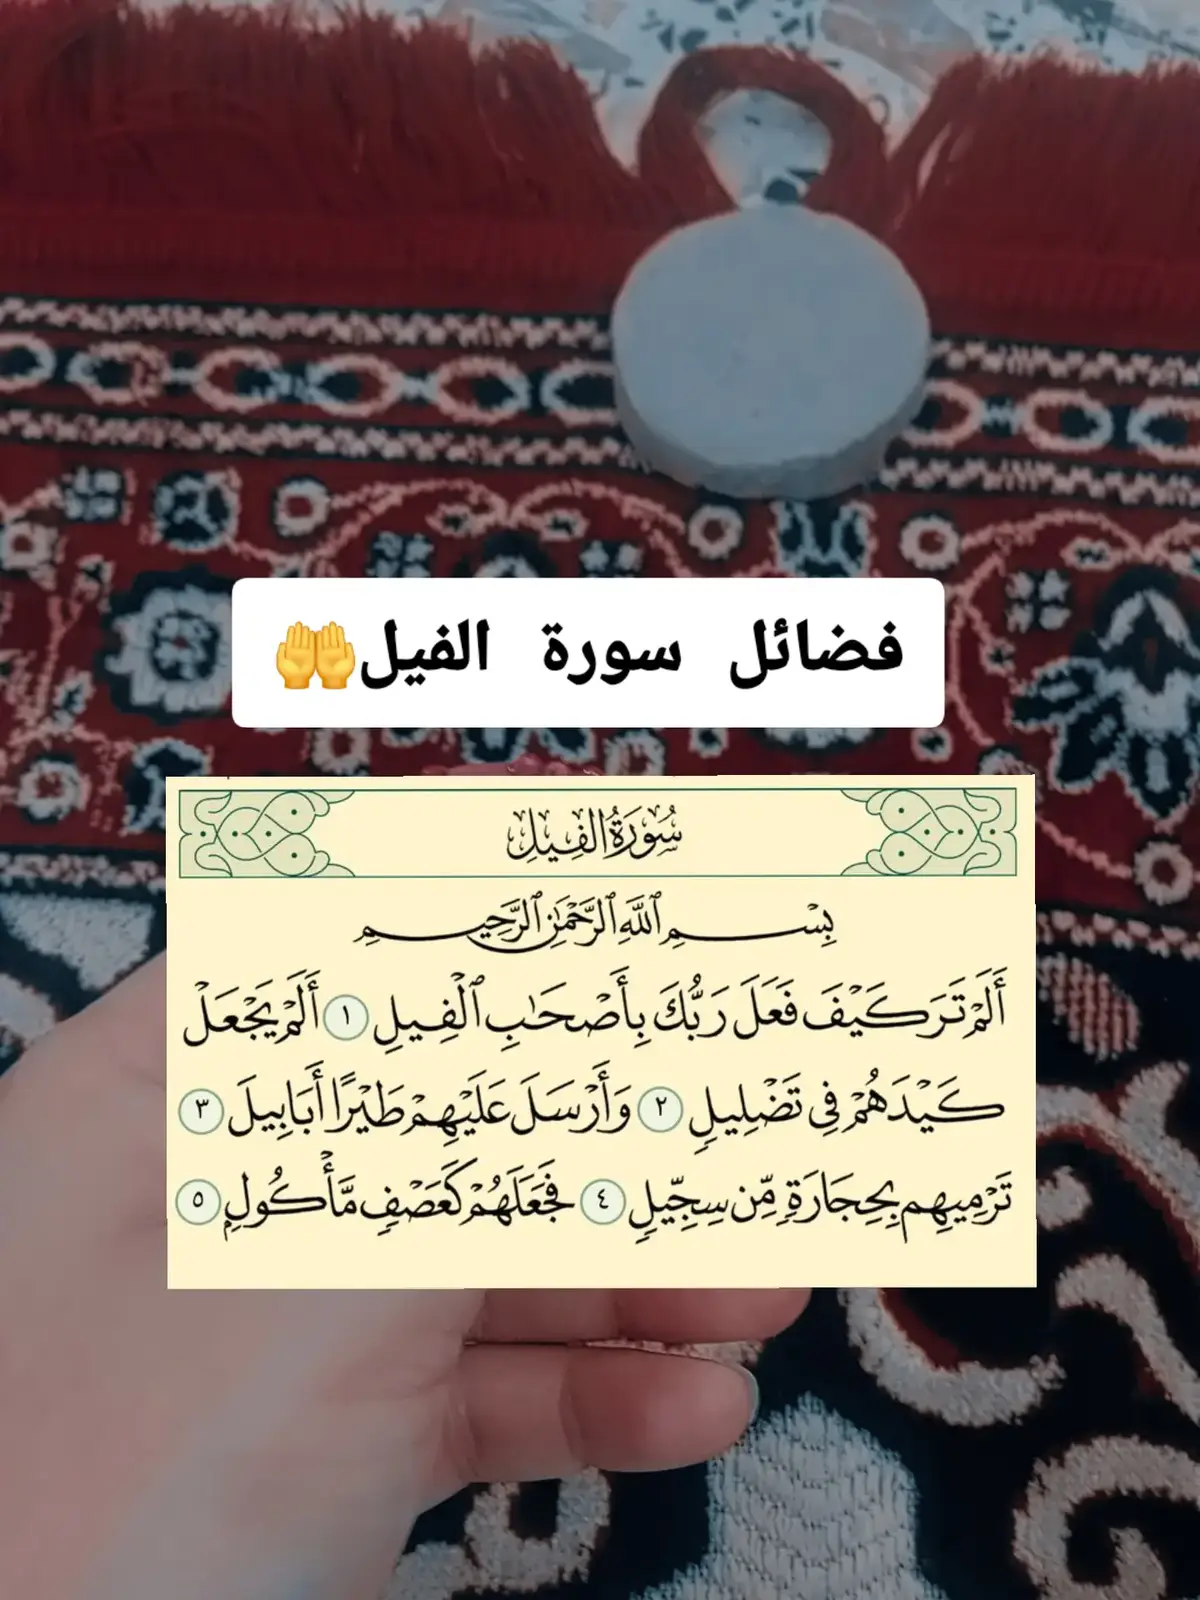 فضائل سورة الفيل🤲
سُورَةُ الفِيلِ
بِسْمِ ٱللَّهِ ٱلرَّحْمَٰنِ ٱلرَّحِيمِ
أَلَمْ تَرَ كَيْفَ فَعَلَ رَبُّكَ بِأَصْحَٰبِ ٱلْفِيلِ ١ أَلَمْ يَجْعَلْ
كَيْدَهُمْ فِى تَضْلِيلٍ ٢ وَأَرْسَلَ عَلَيْهِمْ طَيْرًا أَبَابِيلَ ٣
تَرْمِيهِم بِحِجَارَةٍ مِّن سِجِّيلٍ ٤ فَجَعَلَهُمْ كَعَصْفٍ مَّأْكُولٍ ٥